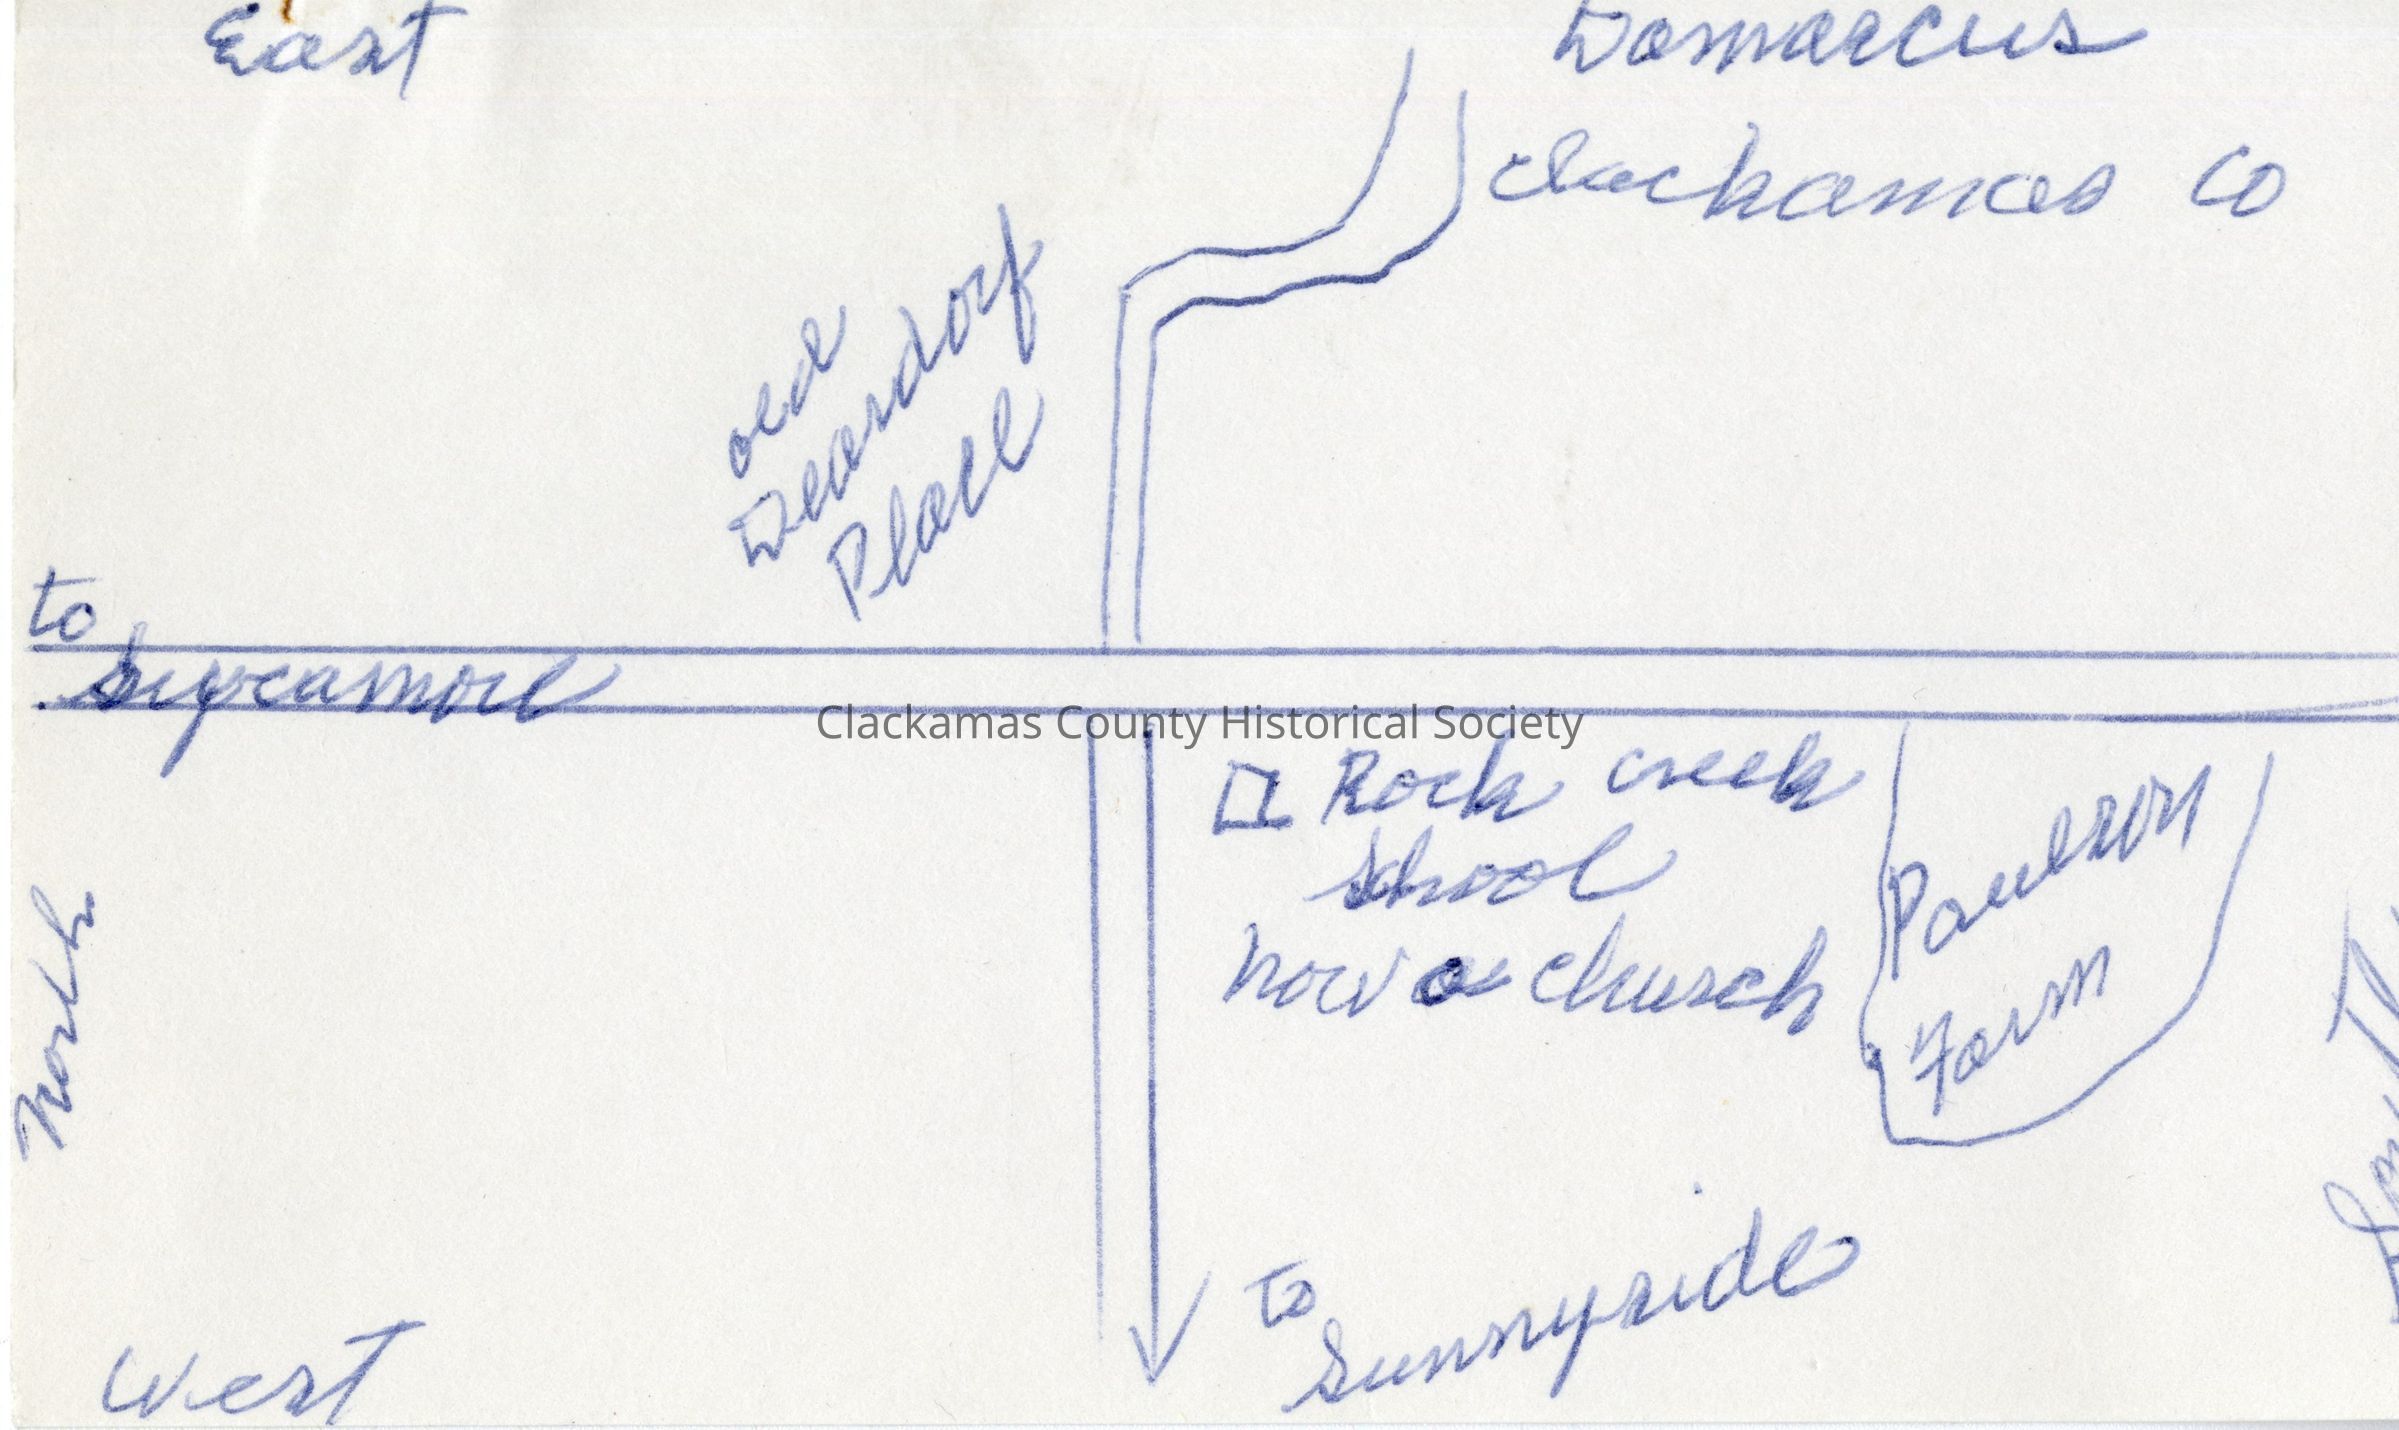 East
Damarcus
Clackamas Co
old
Deardorf
Place
to
Sycamore
Clackamas County Historical Society
Rock creek
School
now a church
Paulson
Farm
North
to
Sunnyside
West